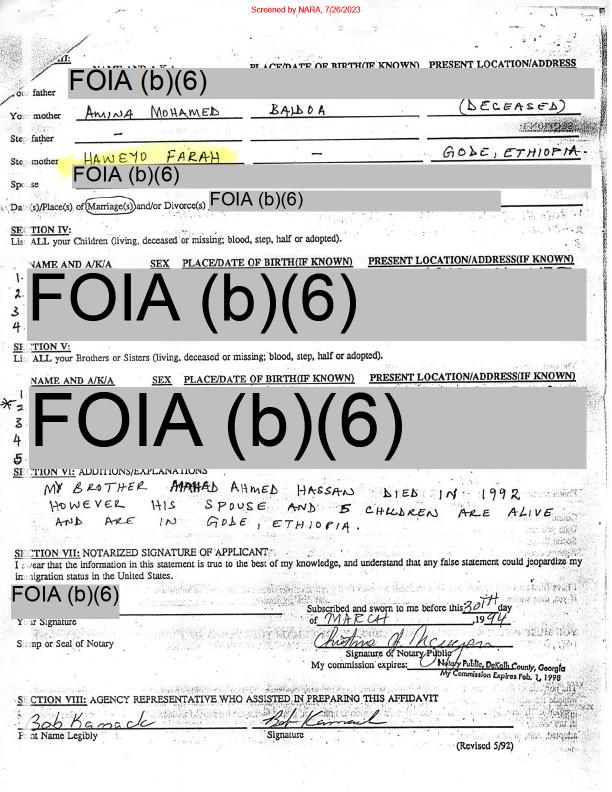 Screened by NARA, 7/26/2023
III:
NAME AND A/K/A PLACE/DATE OF BIRTH(IF KNOWN) PRESENT LOCATION/ADDRESS
father FOIA (b)(6)
mother AMINA MOHAMED BAIDOA (DECEASED)
father –
mother HAWEYO FARAH – GODE, ETHIOPIA
FOIA (b)(6)
(s)/Place(s) of Marriage(s) and/or Divorce(s) FOIA (b)(6)
SE TION IV:
Lis ALL your Children (living, deceased or missing; blood, step, half or adopted).
NAME AND A/K/A SEX PLACE/DATE OF BIRTH(IF KNOWN) PRESENT LOCATION/ADDRESS(IF KNOWN)
1.
2.
3
4
FOIA (b)(6)
SE TION V:
Li ALL your Brothers or Sisters (living, deceased or missing; blood, step, half or adopted).
NAME AND A/K/A SEX PLACE/DATE OF BIRTH(IF KNOWN) PRESENT LOCATION/ADDRESS(IF KNOWN)
1
* 2
3
4
5
FOIA (b)(6)
SE TION VI: ADDITIONS/EXPLANATIONS
MY BROTHER AHMED HASSAN DIED IN 1992
HOWEVER HIS SPOUSE AND 5 CHILDREN ARE ALIVE
AND ARE IN GODE, ETHIOPIA.
SE CTION VII: NOTARIZED SIGNATURE OF APPLICANT
I swear that the information in this statement is true to the best of my knowledge, and understand that any false statement could jeopardize my
immigration status in the United States.
FOIA (b)(6)
Subscribed and sworn to me before this 30TH day
Your Signature of MARCH, 1994
Stamp or Seal of Notary
Signature of Notary Public
My commission expires: Notary Public, DeKalb County, Georgia
My Commission Expires Feb. 1, 1998
SECTION VIII: AGENCY REPRESENTATIVE WHO ASSISTED IN PREPARING THIS AFFIDAVIT
Bob Kamack Bob Kamack
Print Name Legibly Signature
(Revised 5/92)